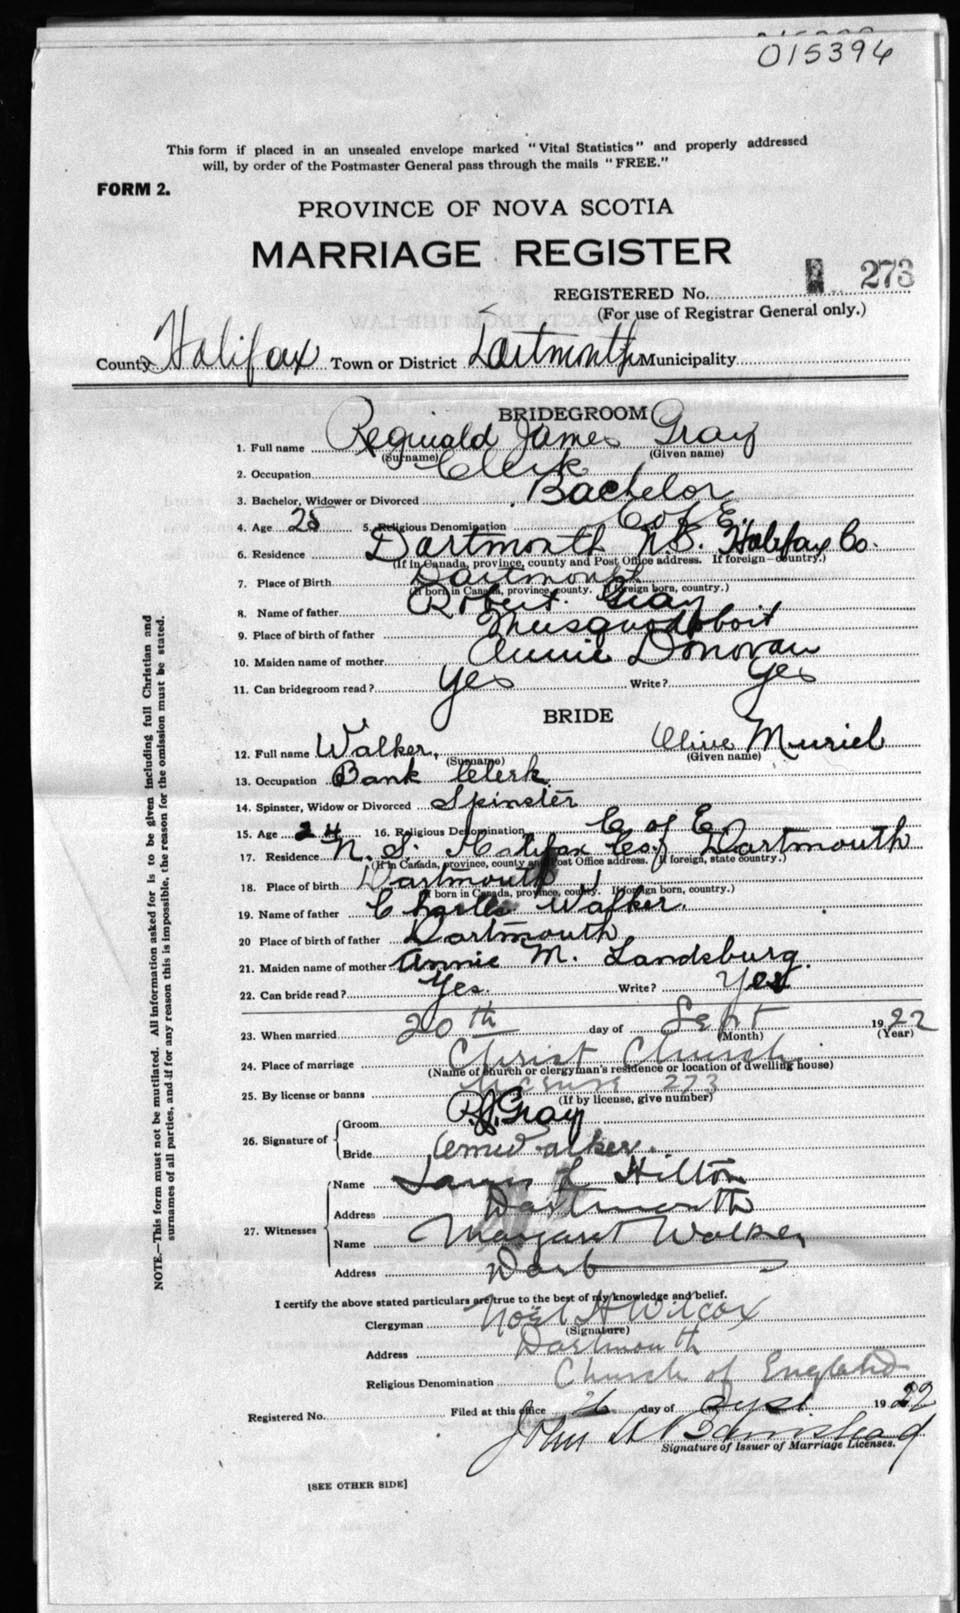 015394
This form if placed in an unsealed envelope marked "Vital Statistics" and properly addressed
will, by order of the Postmaster General pass through the mails "FREE."
FORM 2.
PROVINCE OF NOVA SCOTIA
MARRIAGE REGISTER
REGISTERED No. 273
(For use of Registrar General only.)
County Halifax Town or District Dartmouth Municipality
BRIDEGROOM
1. Full name Reginald James Gray
(Surname) (Given name)
2. Occupation Clerk
3. Bachelor, Widower or Divorced Bachelor
4. Age 25 5. Religious Denomination C of E.
6. Residence Dartmouth N.S. Halifax Co.
(If in Canada, province, county and Post Office address. If foreign—country.)
7. Place of Birth Dartmouth
(If born in Canada, province, county. If foreign born, country.)
8. Name of father Robert Gray
9. Place of birth of father Musquodoboit
10. Maiden name of mother Annie Donovan
11. Can bridegroom read? Yes Write? Yes
BRIDE
12. Full name Walker, Olive Muriel
(Surname) (Given name)
13. Occupation Bank Clerk
14. Spinster, Widow or Divorced Spinster
15. Age 24 16. Religious Denomination C of E
17. Residence N. S. Halifax Co. Dartmouth
(If in Canada, province, county and Post Office address. If foreign, state country.)
18. Place of birth Dartmouth
(If born in Canada, province, county. If foreign born, country.)
19. Name of father Charles Walker.
20 Place of birth of father Dartmouth
21. Maiden name of mother Annie M. Landsburg.
22. Can bride read? Yes. Write? Yes
23. When married 20th day of Sept 1922
(Month) (Year)
24. Place of marriage Christ Church
(Name of church or clergyman's residence or location of dwelling house)
25. By license or banns License 273
(If by license, give number)
26. Signature of Groom R.J. Gray
Bride O M Walker.
27. Witnesses Name L Hilton
Address Dartmouth
Name Margaret Walker
Address Dart
I certify the above stated particulars are true to the best of my knowledge and belief.
Clergyman Noel H Wilcox
(Signature)
Address Dartmouth
Religious Denomination Church of England
Registered No. Filed at this office 26 day of Sept 1922
John A Bamshead
Signature of Issuer of Marriage Licenses.
[SEE OTHER SIDE]
NOTE.—This form must not be mutilated. All information asked for is to be given including full Christian and
surnames of all parties, and if for any reason this is impossible, the reason for the omission must be stated.